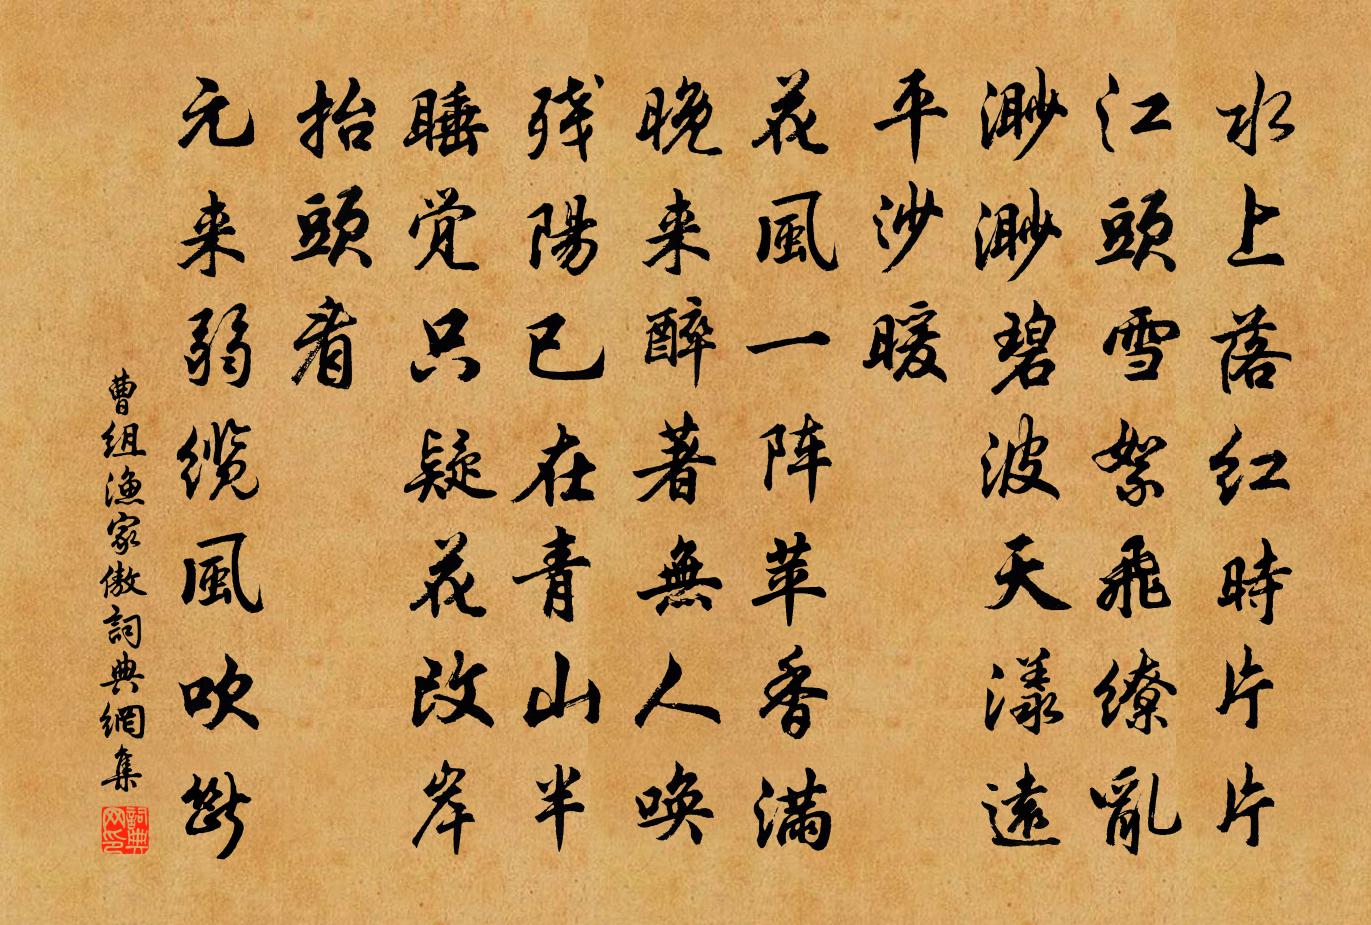 水上落红時片片
江頭雪絮飛缭亂
渺渺碧波天漾遠
平沙暖
花風一阵苹香满
晚来醉著無人唤
残陽已在青山半
睡觉只疑花改岸
抬頭看
元来弱缆風吹斷
曹组渔家傲詞典網集
詞典网印